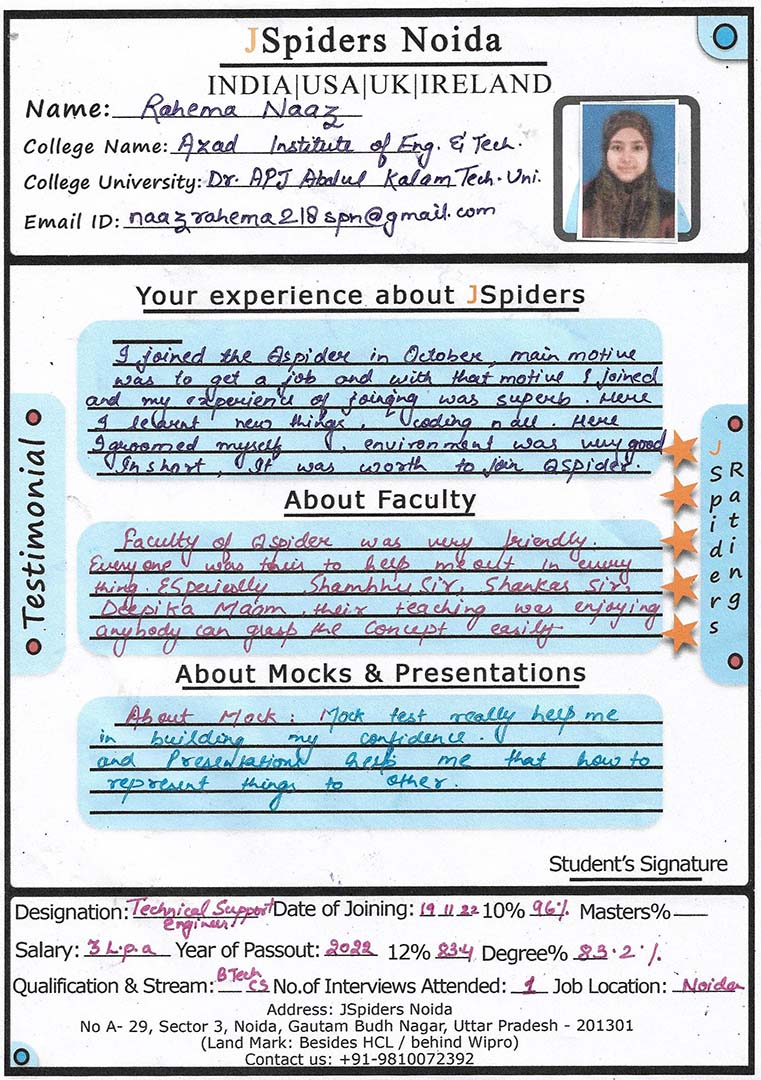 JSpiders Noida
INDIA|USA|UK|IRELAND
Name: Rahema Naaz
College Name: Azad Institute of Eng. & Tech.
College University: Dr. APJ Abdul Kalam Tech. Uni.
Email ID: naazrahema218spn@gmail.com
Your experience about JSpiders
I joined the Qspider in October, main motive
was to get a job and with that motive I joined
and my experience of joinging was superb. Here
I learnt new things, coding n all. Here
I groomed myself, environment was very good
In short, It was worth to join Qspider.
Testimonial
JSpiders
Rating
About Faculty
Faculty of Qspider was very friendly.
Everyone was their to help me out in every
thing. ESpecially Shambhu Sir, Shankar Sir,
Deepika Maam, their teaching was enjoying
anybody can grasp the concept easily
About Mocks & Presentations
About Mock: Mock test really help me
in building my confidence.
and Presentation help me that how to
represent things to other.
Student's Signature
Designation: Technical Support Engineer Date of Joining: 19 11 22 10% 96% Masters%
Salary: 3 L.p.a Year of Passout: 2022 12% 83.4 Degree% 83.2%
Qualification & Stream: BTech CS No.of Interviews Attended: 1 Job Location: Noida
Address: JSpiders Noida
No A- 29, Sector 3, Noida, Gautam Budh Nagar, Uttar Pradesh - 201301
(Land Mark: Besides HCL / behind Wipro)
Contact us: +91-9810072392